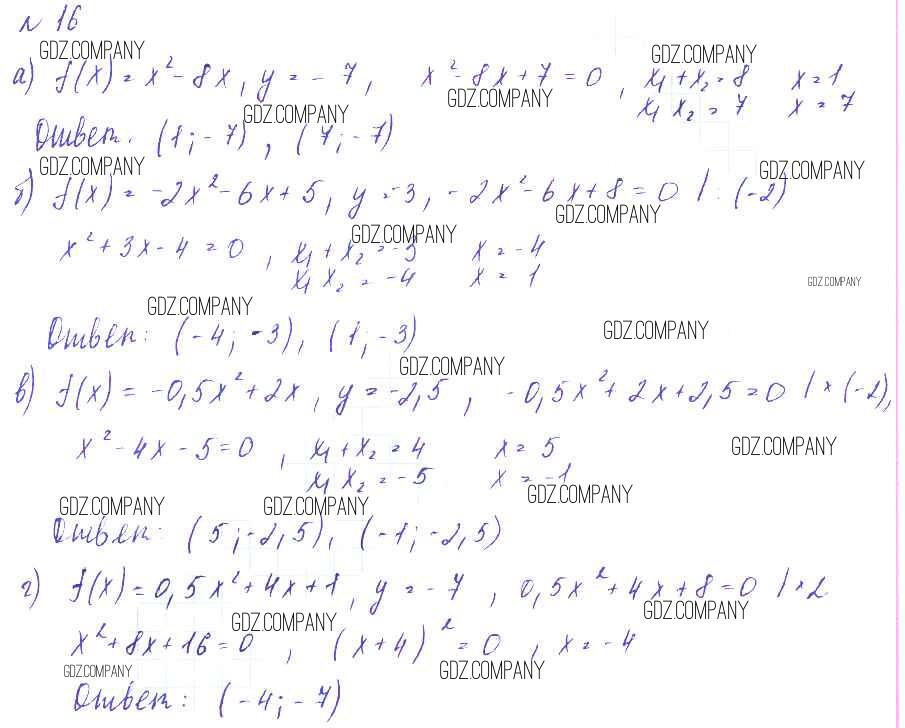 № 16
GDZ.COMPANY GDZ.COMPANY
а) f(x) = x² - 8x, y = -7, x² - 8x + 7 = 0, x₁ + x₂ = 8 x = 1
GDZ.COMPANY GDZ.COMPANY x₁ x₂ = 7 x = 7
Ответ. (1; -7), (7; -7)
GDZ.COMPANY GDZ.COMPANY
б) f(x) = -2x² - 6x + 5, y = -3, -2x² - 6x + 8 = 0 / : (-2)
GDZ.COMPANY
GDZ.COMPANY
x² + 3x - 4 = 0, x₁ + x₂ = -3 x = -4
x₁ x₂ = -4 x = 1
GDZ.COMPANY
GDZ.COMPANY
Ответ: (-4; -3), (1; -3)
GDZ.COMPANY
GDZ.COMPANY
в) f(x) = -0,5x² + 2x, y = -2,5, -0,5x² + 2x + 2,5 = 0 / × (-2),
x² - 4x - 5 = 0, x₁ + x₂ = 4 x = 5
GDZ.COMPANY
x₁ x₂ = -5 x = -1
GDZ.COMPANY
GDZ.COMPANY GDZ.COMPANY
Ответ: (5; -2,5), (-1; -2,5)
г) f(x) = 0,5x² + 4x + 1, y = -7, 0,5x² + 4x + 8 = 0 / × 2
GDZ.COMPANY
GDZ.COMPANY
x² + 8x + 16 = 0, (x + 4)² = 0, x = -4
GDZ.COMPANY GDZ.COMPANY
Ответ: (-4; -7)